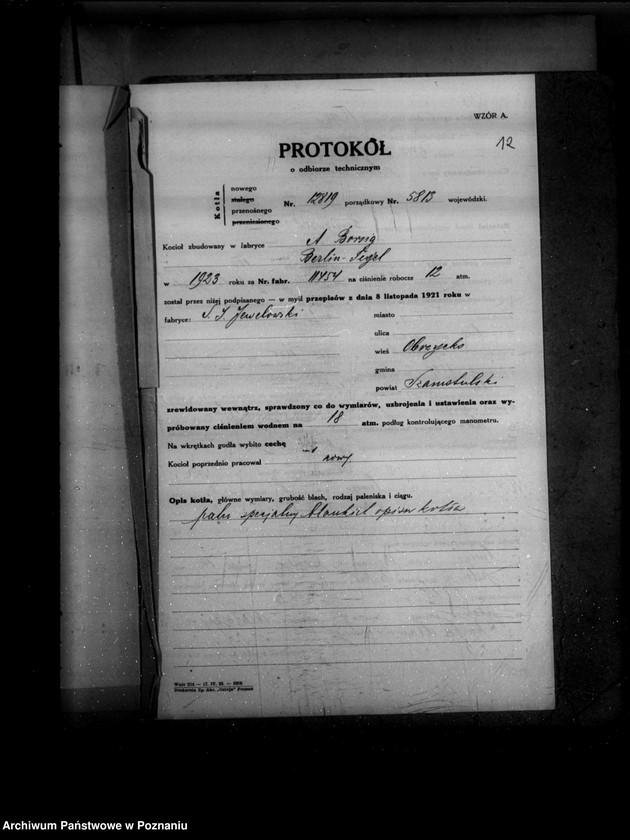 WZÓR A.
12
PROTOKÓŁ
o odbiorze technicznym
Kotła
nowego
stałego
przenośnego
przeniesionego
Nr. 12819 porządkowy Nr. 5813 wojewódzki.
Kocioł zbudowany w fabryce A Borsig
Berlin-Tegel
w 1923 roku za Nr. fabr. 11454 na ciśnienie robocze 12 atm.
został przez niżej podpisanego — w myśl przepisów z dnia 8 listopada 1921 roku w
fabryce:
miasto
ulica
wieś Obrzycko
gmina
powiat Szamotulski
zrewidowany wewnątrz, sprawdzony co do wymiarów, uzbrojenia i ustawienia oraz wy-
próbowany ciśnieniem wodnem na 18 atm. podług kontrolującego manometru.
Na wkrętkach godła wybito cechę
Kocioł poprzednio pracował nowy.
Opis kotła, główne wymiary, grubość blach, rodzaj paleniska i ciągu.
patrz specjalny opis kotła
Drukarnia Sp. Akc. „Ostoja" Poznań
Archiwum Państwowe w Poznaniu